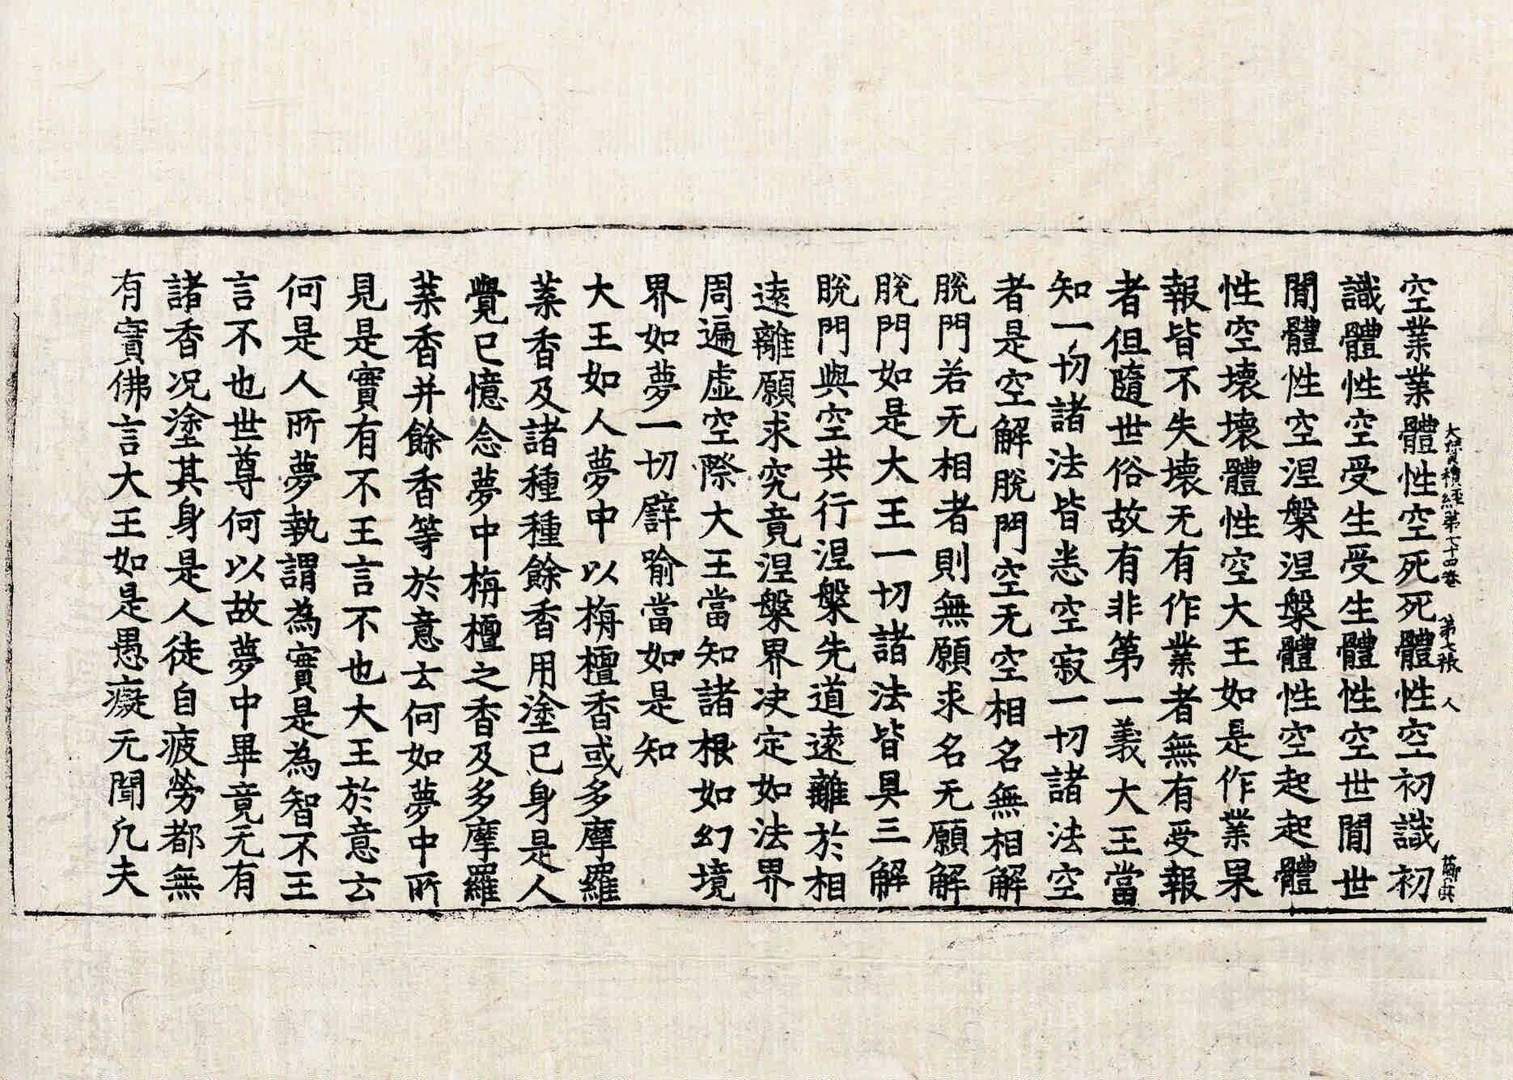 大寳積經第七十四卷 第七張 人
空業業體性空死死體性空初識初
識體性空受生受生體性空世閒世
閒體性空涅槃涅槃體性空起起體
性空壞壞體性空大王如是作業果
報皆不失壞无有作業者無有受報
者但隨世俗故有非第一義大王當
知一切諸法皆悉空寂一切諸法空
者是空解脫門空无空相名無相解
脫門若无相者則無願求名无願解
脫門如是大王一切諸法皆具三解
脫門與空共行涅槃先道遠離於相
遠離願求究竟涅槃界決定如法界
周遍虛空際大王當知諸根如幻境
界如夢一切譬喻當如是知
大王如人夢中以栴檀香或多摩羅
葉香及諸種種餘香用塗己身是人
覺已憶念夢中栴檀之香及多摩羅
葉香并餘香等於意云何如夢中所
見是實有不王言不也大王於意云
何是人所夢執謂為實是為智不王
言不也世尊何以故夢中畢竟无有
諸香況塗其身是人徒自疲勞都無
有實佛言大王如是愚癡无聞凡夫